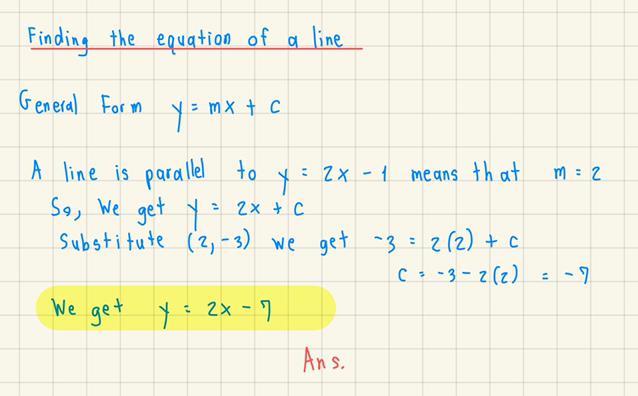 Finding the equation of a line
General Form y = mx + c
A line is parallel to y = 2x - 1 means that m = 2
So, We get y = 2x + c
Substitute (2, -3) we get -3 = 2(2) + c
c = -3 - 2(2) = -7
We get y = 2x - 7
Ans.